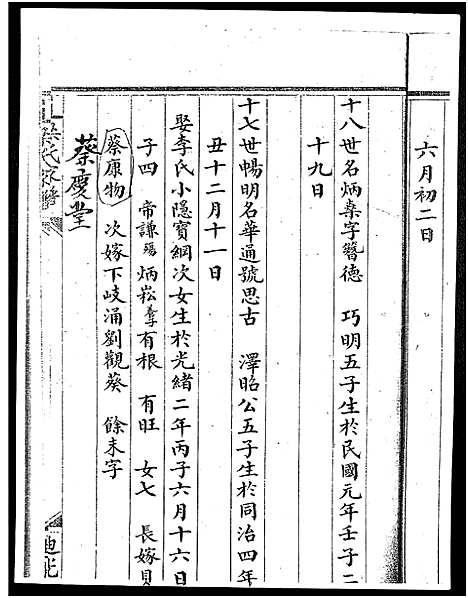 六月初二日
十八世名炳燊字簪德　巧明五子生於民國元年壬子二
十九日
十七世暢明名華通號思古　澤昭公五子生於同治四年
丑十二月十一日
娶李氏小隱寶綱次女生於光緒二年丙子六月十六日
子四　帝謙殤　炳崧　有根　有旺　女七　長嫁貝
蔡康物　次嫁下岐涌劉觀葵　餘未字
蔡慶堂
梁氏家譜